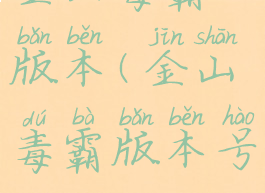 bǎn běn jīn shān
版本(金山
dú bà bǎn běn hào
毒霸版本号